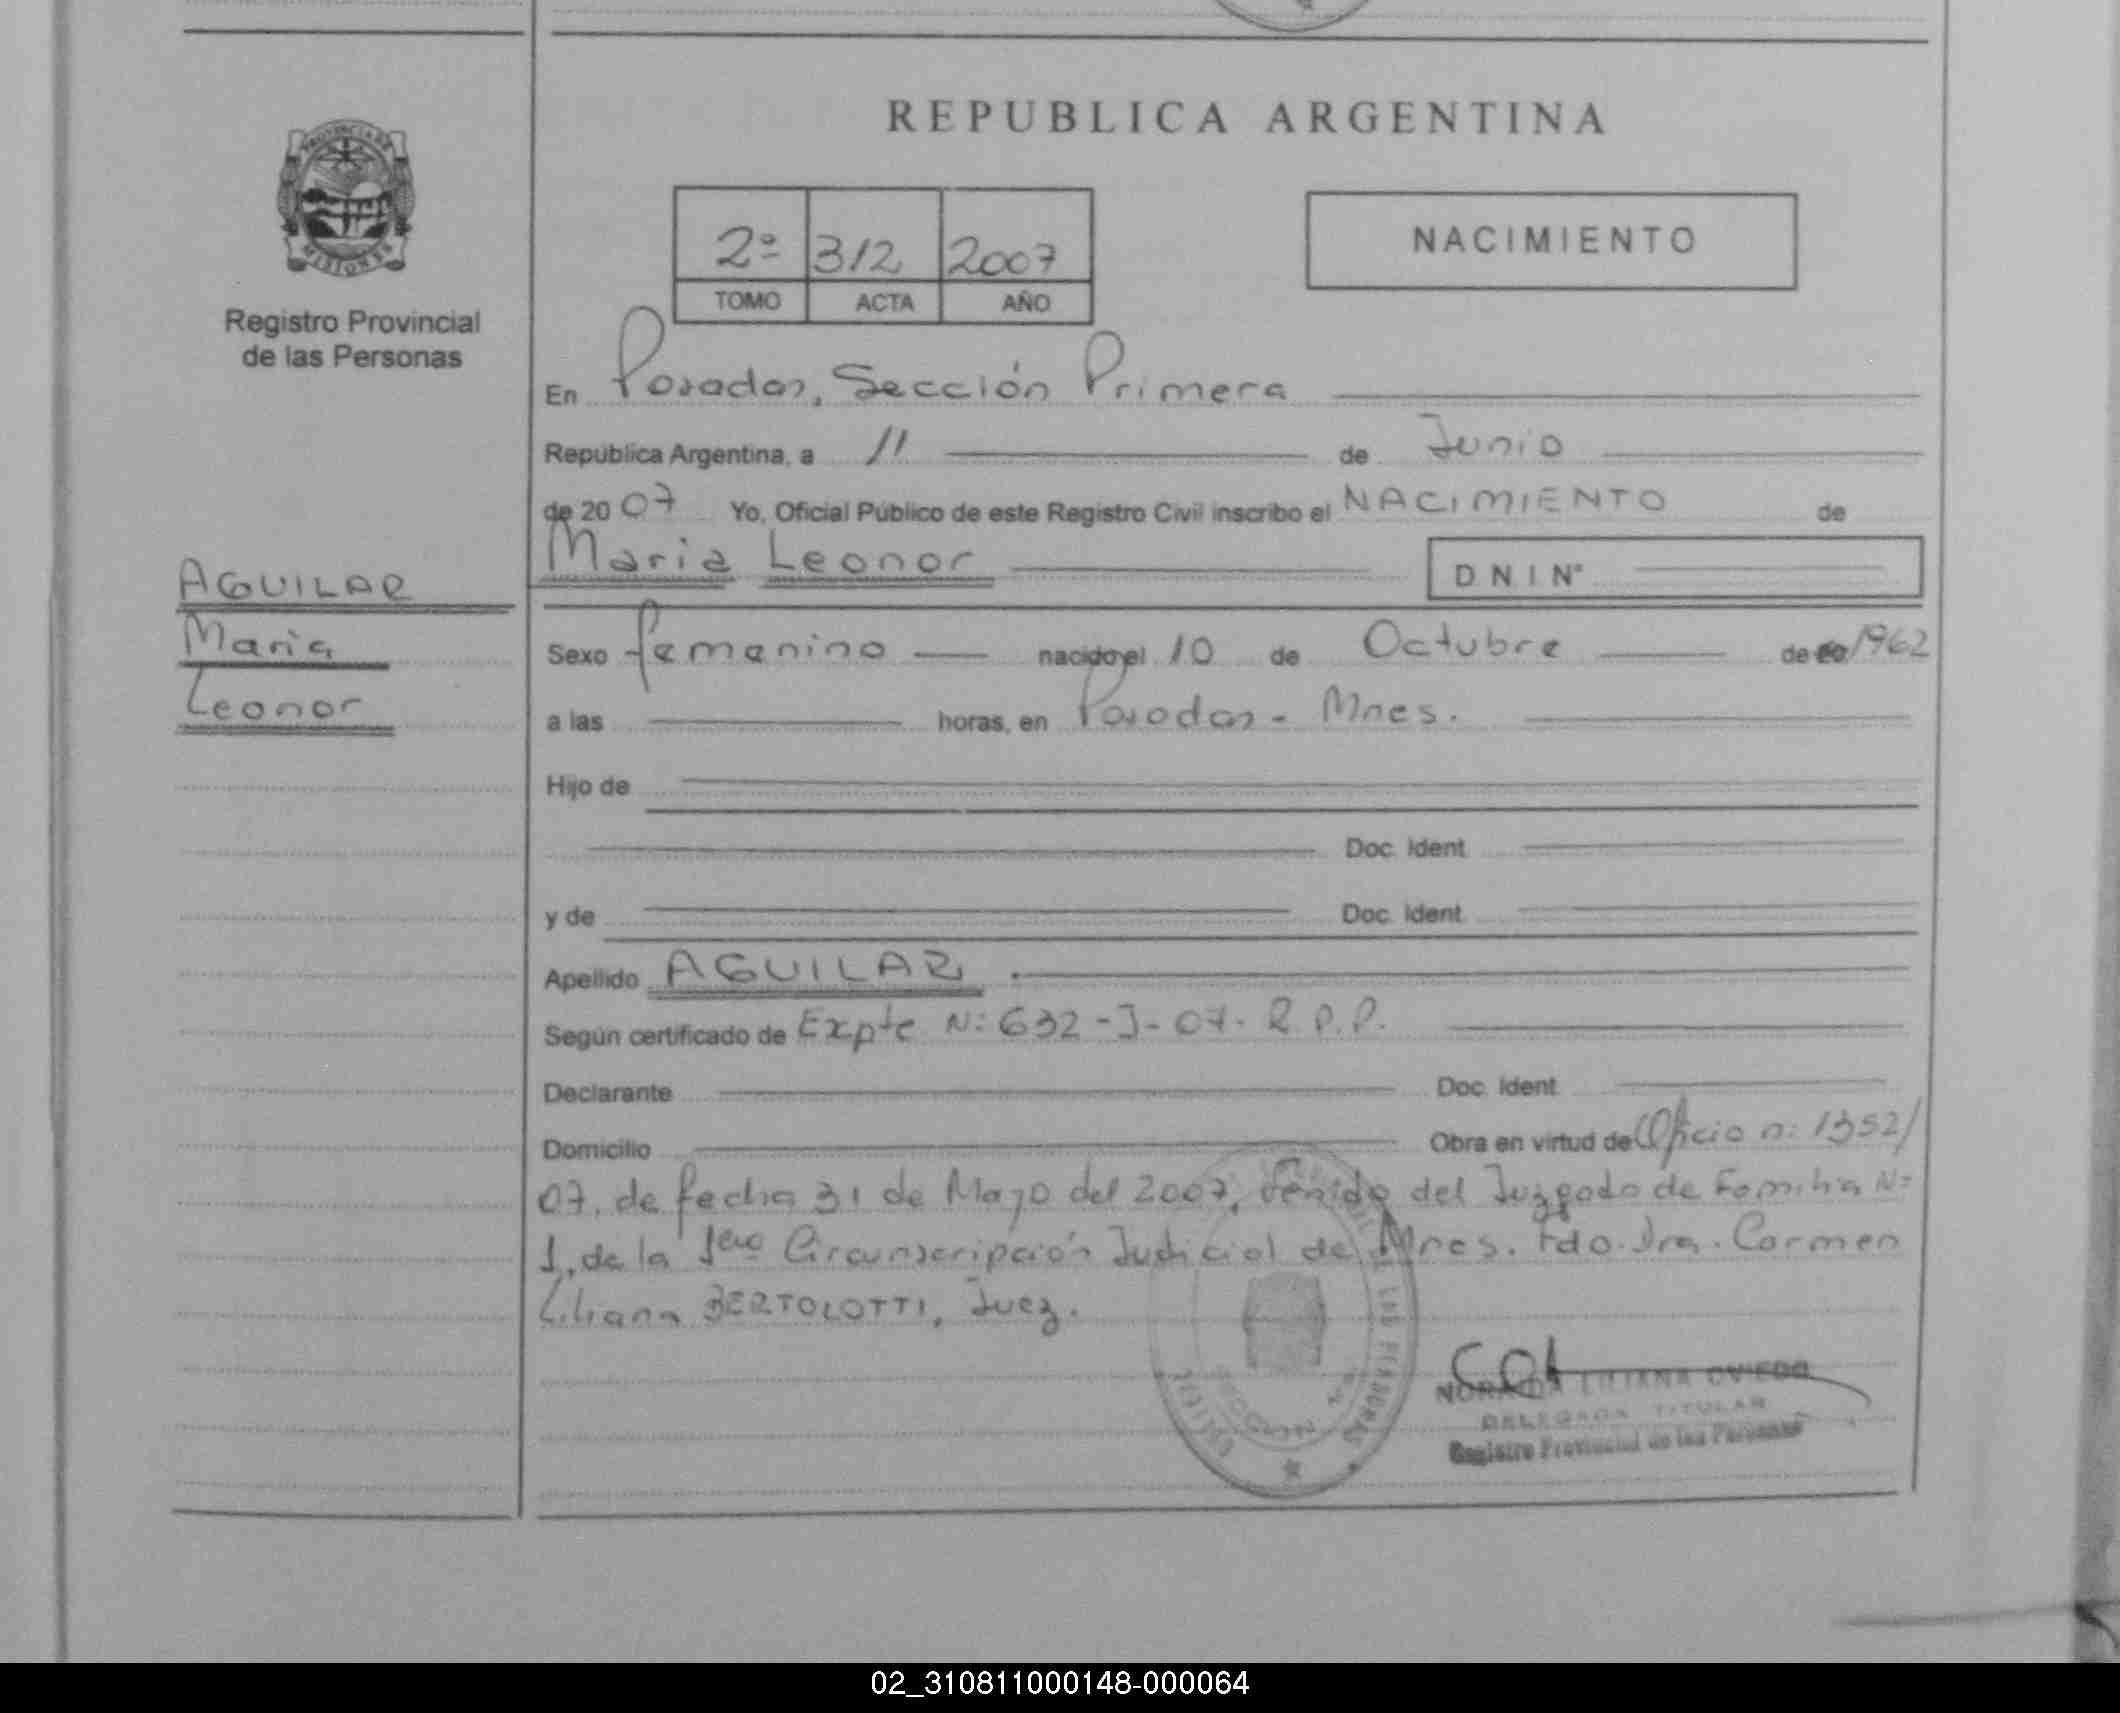 REPUBLICA ARGENTINA
PROVINCIA DE
MISIONES
Registro Provincial
de las Personas
2º 312 2007
TOMO ACTA AÑO
NACIMIENTO
En Posadas, Sección Primera
República Argentina, a 11 de Junio
de 20 07 Yo, Oficial Público de este Registro Civil inscribo el NACIMIENTO de
Maria Leonor
D N I Nº
AGUILAR
Maria
Leonor
Sexo femenino nacido el 10 de Octubre de 1962
a las horas, en Posadas - Mnes.
Hijo de
Doc. Ident.
y de Doc. Ident.
Apellido AGUILAR
Según certificado de Expte N: 632 - J - 07 - R. P. P.
Declarante Doc. Ident.
Domicilio Obra en virtud de Oficio n: 1352/
07, de fecha 31 de Mayo del 2007, del Juzgado de Familia N:
1, de la 1era Circunscripción Judicial de Mnes. Fdo. Dra. Carmen
Liliana BERTOLOTTI, Juez.
LILIANA OVIEDO
DELEGADA TITULAR
Registro Provincial de las Personas
DE LAS PERSONAS
02_310811000148-000064